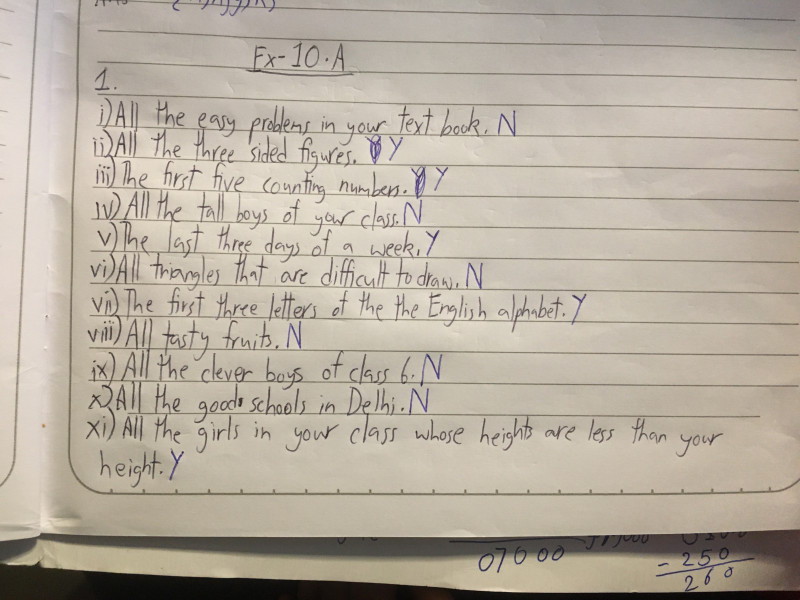 Ex-10.A
1.
i) All the easy problems in your text book. N
ii) All the three sided figures. Y
iii) The first five counting numbers. Y
iv) All the tall boys of your class. N
v) The last three days of a week. Y
vi) All triangles that are difficult to draw. N
vii) The first three letters of the the English alphabet. Y
viii) All tasty fruits. N
ix) All the clever boys of class 6. N
x) All the good schools in Delhi. N
xi) All the girls in your class whose heights are less than your
height. Y
07000
- 250
260